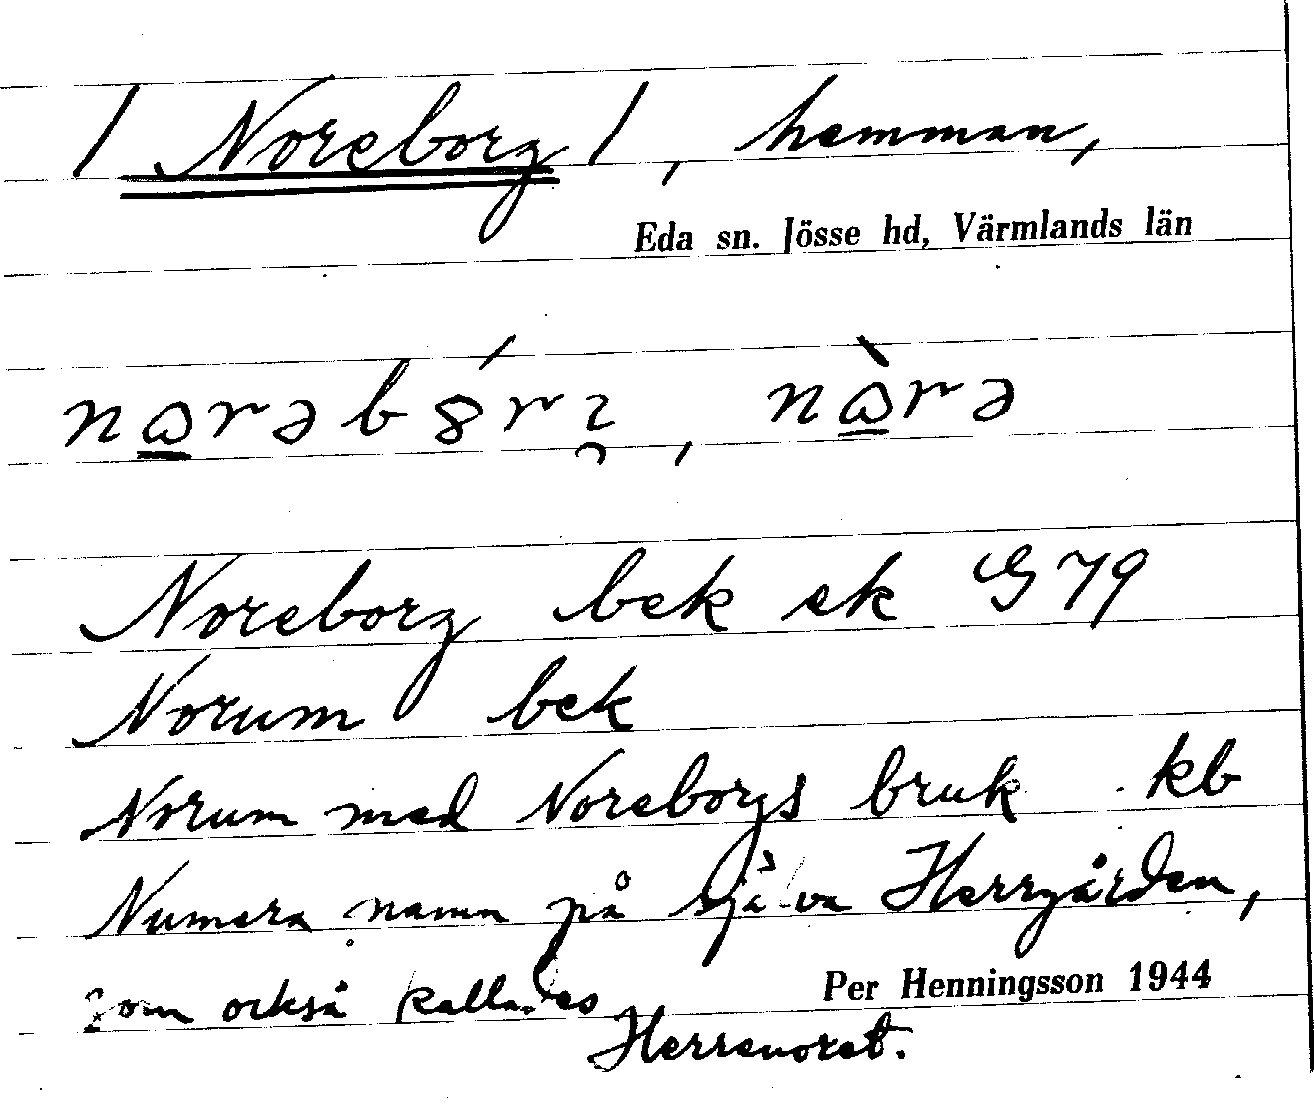 / Noreborg /, hemman,
Eda sn. Jösse hd, Värmlands län
Noreborg bek ek G 79
Norum bek
Norum med Noreborgs bruk kb
Numera namn på själva Herrgården,
som också kallades
Per Henningsson 1944
Herrenoret.